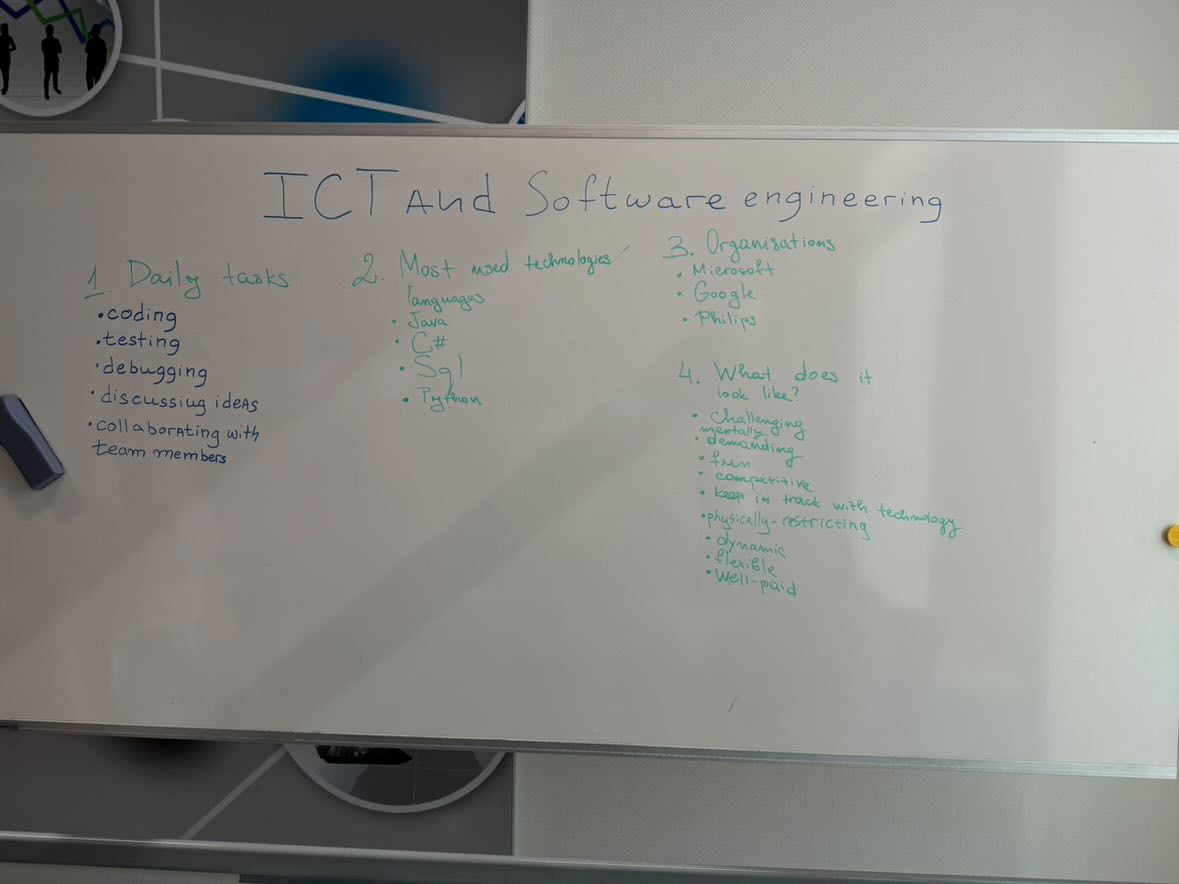 ICT And Software engineering
1. Daily tasks
• coding
• testing
• debugging
• discussing ideas
• collaborating with
team members
2. Most used technologies/
languages
• Java
• C#
• Sql
• Python
3. Organisations
• Microsoft
• Google
• Philips
4. What does it
look like?
• challenging
mentally
• demanding
• fun
• competitive
• keep in track with technology
• physically-restricting
• dynamic
• flexible
• well-paid